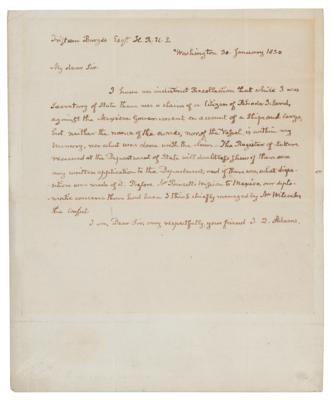 Tristam Burges Esqr H. R. U. S.
Washington 30. January 1830
My dear Sir.
I have an indistinct Recollection that while I was
Secretary of State there was a claim of a Citizen of Rhode Island,
against the Mexican Government on account of a Ship and Cargo,
but neither the name of the owners, nor of the Vessel is within my
Memory, nor what was done with the claim. The Register of Letters
received at the Department of State will doubtless shew if there was
any written application to the Department, and if there was, what dispo-
sition was made of it. Before Mr Poinsett's mission to Mexico, our diplo-
matic concerns there had been I think chiefly managed by Mr Wilcocks
the Consul.
I am, Dear Sir, very respectfully, your friend J. Q. Adams.